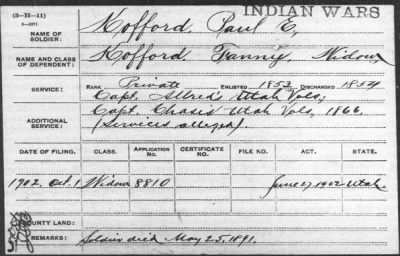 INDIAN WARS
(3-II-11)
NAME OF SOLDIER: Kofford. Paul E.
NAME AND CLASS OF DEPENDENT: Kofford. Fanny, Widow
SERVICE: RANK Private ENLISTED 1853 DISCHARGED 1854
Capt. Allred's Utah Vols,;
ADDITIONAL SERVICE: Capt. Chases Utah Vols, 1866,
(Services alleged).
DATE OF FILING. CLASS. APPLICATION NO. CERTIFICATE NO. FILE NO. ACT. STATE.
1902, Oct. 1 Widow 8810 June 27, 1902 Utah
BOUNTY LAND:
REMARKS: Soldier died May 25, 1891.